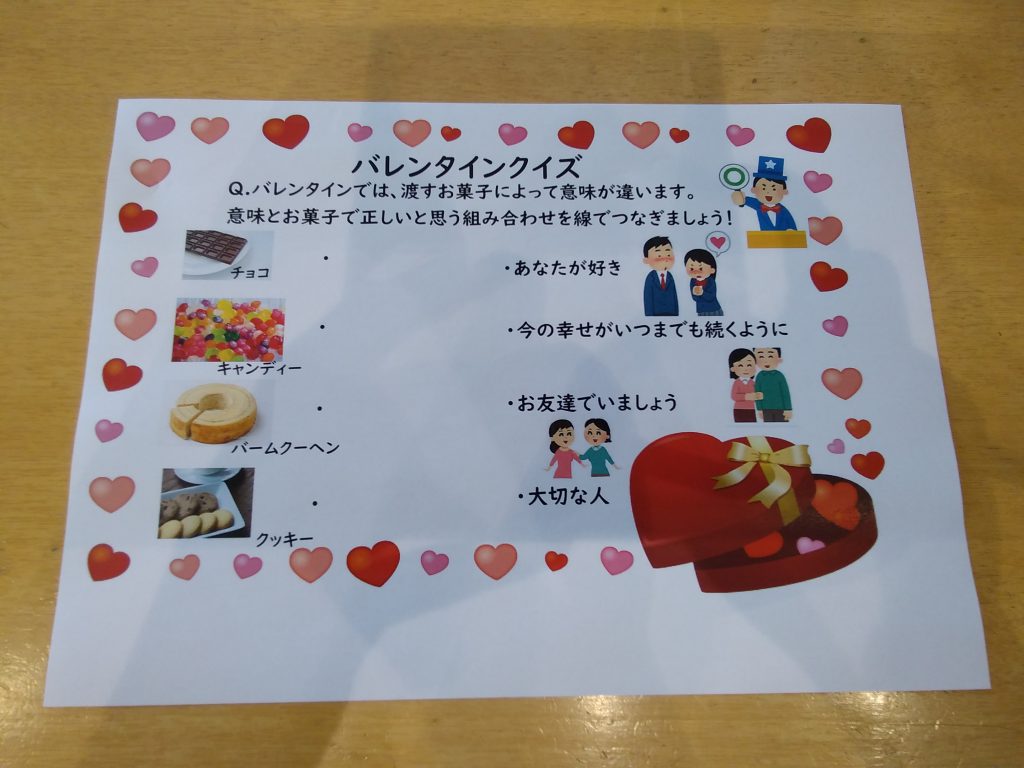 バレンタインクイズ
Q.バレンタインでは、渡すお菓子によって意味が違います。
意味とお菓子で正しいと思う組み合わせを線でつなぎましょう!
チョコ ・ ・あなたが好き
キャンディー ・ ・今の幸せがいつまでも続くように
バームクーヘン ・ ・お友達でいましょう
クッキー ・ ・大切な人